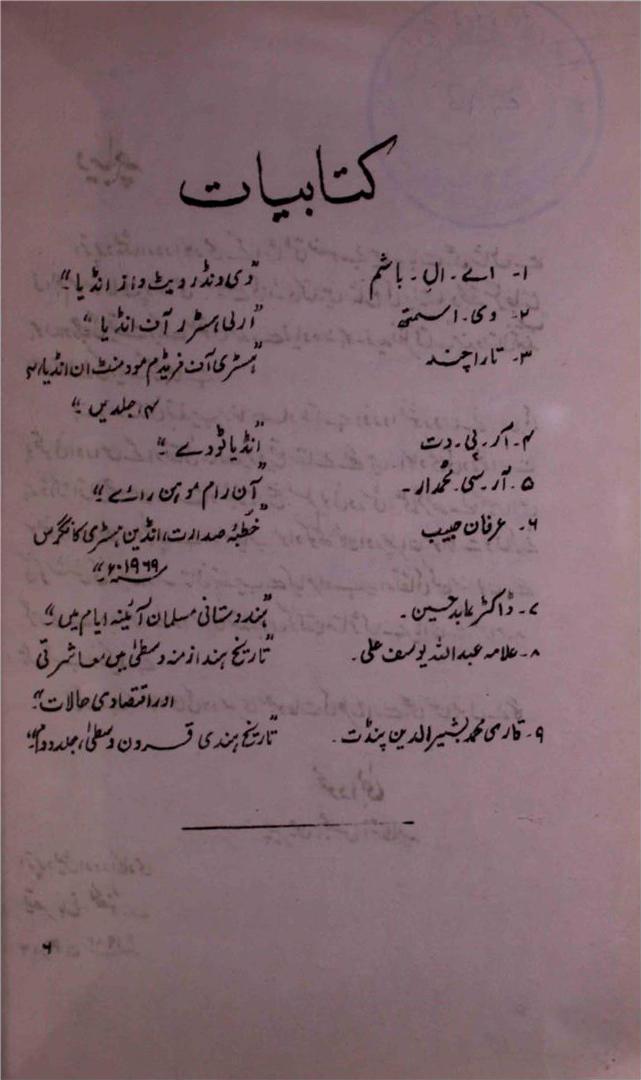 کتابیات
۱۔ اے۔ ال۔ باشم "دی ونڈر ویٹ واز انڈیا"
۲۔ وی۔ اسمتھ "ارلی ہسٹر آف انڈیا"
۳۔ تارا چند "ہسٹری آف فریڈم مودمنٹ ان انڈیا، ۳
۴، جلدیں"
۴۔ آر۔ پی۔ دت "انڈیا ٹوڈے"
۵۔ آر۔ سی۔ مجمدار۔ "آن رام موہن رائے"
۶۔ عرفان حبیب "خطبۂ صدارت، انڈین ہسٹری کانگرس
۱۹۶۹ء"
۷۔ ڈاکٹر عابد حسین۔ "ہندوستانی مسلمان آئینہ ایام میں"
۸۔ علامہ عبداللہ یوسف علی۔ "تاریخ ہند ازمنہ وسطیٰ میں معاشرتی
اور اقتصادی حالات"
۹۔ قاری محمد بشیر الدین پنڈت۔ "تاریخ ہندی قرون وسطیٰ، جلد دوم"
۶